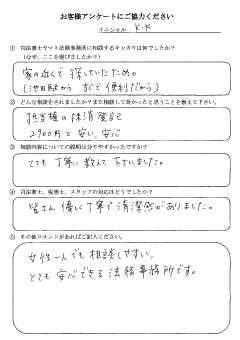 お客様アンケートにご協力ください
イニシャル K.K
① 司法書士ヤマト法務事務所に相談するキッカケは何でしたか？
（なぜ、ここを選びましたか？）
家の近くで探していたため。
（池田駅からすぐで便利だから）
② どんな相談をされましたか？また相談して良かったと思うことを教えて下さい。
担当権の抹消登記
2900円と安い、安心
③ 相談内容についての説明は分りやすかったですか？
とても丁寧に教えて下さいました。
④ 司法書士、税理士、スタッフの対応はどうでしたか？
皆さん優しく丁寧で清潔感がありました。
⑤ その他コメントがあればご記入ください。
女性一人でも相談しやすい、
とても安心できる法務事務所です。